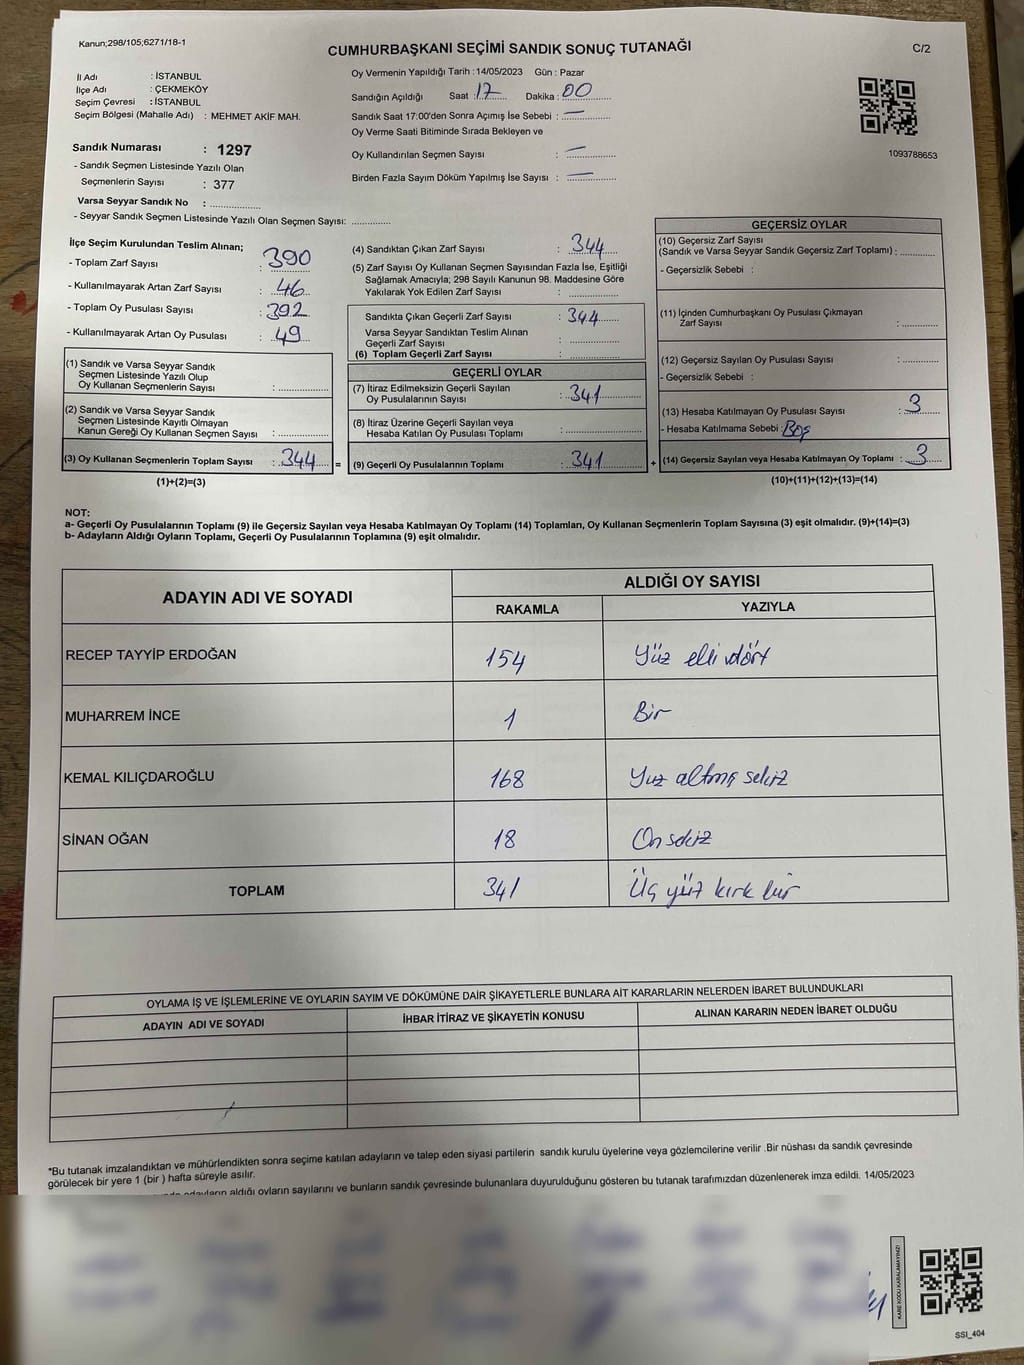 Kanun;298/105;6271/18-1
CUMHURBAŞKANI SEÇİMİ SANDIK SONUÇ TUTANAĞI
C/2
İl Adı : İSTANBUL
İlçe Adı : ÇEKMEKÖY
Seçim Çevresi : İSTANBUL
Seçim Bölgesi (Mahalle Adı) : MEHMET AKİF MAH.
Sandık Numarası : 1297
- Sandık Seçmen Listesinde Yazılı Olan
Seçmenlerin Sayısı : 377
Varsa Seyyar Sandık No : ..............
- Seyyar Sandık Seçmen Listesinde Yazılı Olan Seçmen Sayısı: ..............
Oy Vermenin Yapıldığı Tarih :14/05/2023 Gün : Pazar
Sandığın Açıldığı Saat :17 Dakika : 00
Sandık Saat 17:00'den Sonra Açımış İse Sebebi : —
Oy Verme Saati Bitiminde Sırada Bekleyen ve
Oy Kullandırılan Seçmen Sayısı : —
Birden Fazla Sayım Döküm Yapılmış İse Sayısı : —
1093788653
İlçe Seçim Kurulundan Teslim Alınan;
- Toplam Zarf Sayısı : 390
- Kullanılmayarak Artan Zarf Sayısı : 46
- Toplam Oy Pusulası Sayısı : 392
- Kullanılmayarak Artan Oy Pusulası : 49
(1) Sandık ve Varsa Seyyar Sandık
Seçmen Listesinde Yazılı Olup
Oy Kullanan Seçmenlerin Sayısı : ..............
(2) Sandık ve Varsa Seyyar Sandık
Seçmen Listesinde Kayıtlı Olmayan
Kanun Gereği Oy Kullanan Seçmen Sayısı : ..............
(3) Oy Kullanan Seçmenlerin Toplam Sayısı : 344 =
(1)+(2)=(3)
(4) Sandıktan Çıkan Zarf Sayısı : 344
(5) Zarf Sayısı Oy Kullanan Seçmen Sayısından Fazla İse, Eşitliği
Sağlamak Amacıyla; 298 Sayılı Kanunun 98. Maddesine Göre
Yakılarak Yok Edilen Zarf Sayısı : ..............
Sandıkta Çıkan Geçerli Zarf Sayısı : 344
Varsa Seyyar Sandıktan Teslim Alınan
Geçerli Zarf Sayısı : ..............
(6) Toplam Geçerli Zarf Sayısı : ..............
GEÇERLİ OYLAR
(7) İtiraz Edilmeksizin Geçerli Sayılan
Oy Pusulalarının Sayısı : 341
(8) İtiraz Üzerine Geçerli Sayılan veya
Hesaba Katılan Oy Pusulası Toplamı : ..............
(9) Geçerli Oy Pusulalarının Toplamı : 341 +
GEÇERSİZ OYLAR
(10) Geçersiz Zarf Sayısı
(Sandık ve Varsa Seyyar Sandık Geçersiz Zarf Toplamı) : ..............
- Geçersizlik Sebebi :
(11) İçinden Cumhurbaşkanı Oy Pusulası Çıkmayan
Zarf Sayısı : ..............
(12) Geçersiz Sayılan Oy Pusulası Sayısı : ..............
- Geçersizlik Sebebi :
(13) Hesaba Katılmayan Oy Pusulası Sayısı : 3
- Hesaba Katılmama Sebebi : Boş
(14) Geçersiz Sayılan veya Hesaba Katılmayan Oy Toplamı : 3
(10)+(11)+(12)+(13)=(14)
NOT:
a- Geçerli Oy Pusulalarının Toplamı (9) ile Geçersiz Sayılan veya Hesaba Katılmayan Oy Toplamı (14) Toplamları, Oy Kullanan Seçmenlerin Toplam Sayısına (3) eşit olmalıdır. (9)+(14)=(3)
b- Adayların Aldığı Oyların Toplamı, Geçerli Oy Pusulalarının Toplamına (9) eşit olmalıdır.
ADAYIN ADI VE SOYADI
ALDIĞI OY SAYISI
RAKAMLA YAZIYLA
RECEP TAYYİP ERDOĞAN 154 Yüz elli dört
MUHARREM İNCE 1 Bir
KEMAL KILIÇDAROĞLU 168 Yuz altmış sekiz
SİNAN OĞAN 18 On sekiz
TOPLAM 341 Üç yüz kırk bir
OYLAMA İŞ VE İŞLEMLERİNE VE OYLARIN SAYIM VE DÖKÜMÜNE DAİR ŞİKAYETLERLE BUNLARA AİT KARARLARIN NELERDEN İBARET BULUNDUKLARI
ADAYIN ADI VE SOYADI İHBAR İTİRAZ VE ŞİKAYETİN KONUSU ALINAN KARARIN NEDEN İBARET OLDUĞU
*Bu tutanak imzalandıktan ve mühürlendikten sonra seçime katılan adayların ve talep eden siyasi partilerin sandık kurulu üyelerine veya gözlemcilerine verilir .Bir nüshası da sandık çevresinde
görülecek bir yere 1 (bir ) hafta süreyle asılır.
adayların aldığı oyların sayılarını ve bunların sandık çevresinde bulunanlara duyurulduğunu gösteren bu tutanak tarafımızdan düzenlenerek imza edildi. 14/05/2023
KARE KODU KARALAMAYINIZ!
SSI_404